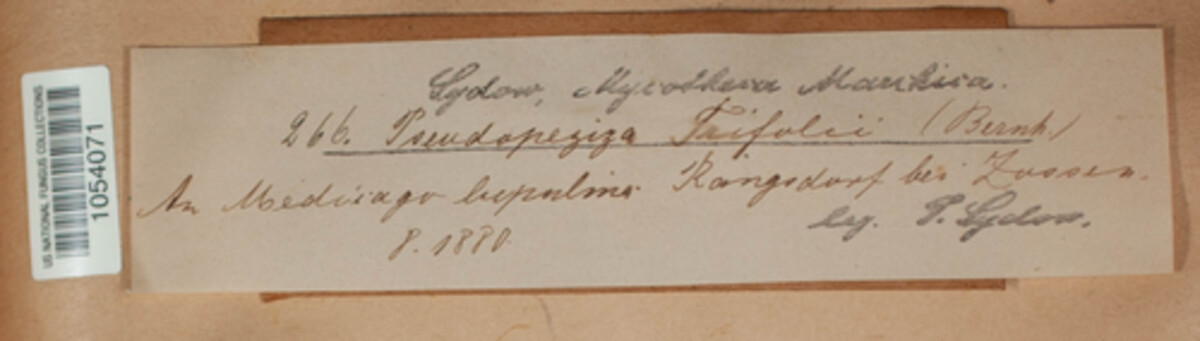 US NATIONAL FUNGUS COLLECTIONS
1054071
Sydow, Mycotheca Marchica.
266. Pseudopeziza Trifolii (Bernh.)
An Medicago lupulina Rangsdorf bei Zossen.
8. 1880.
leg. P. Sydow.